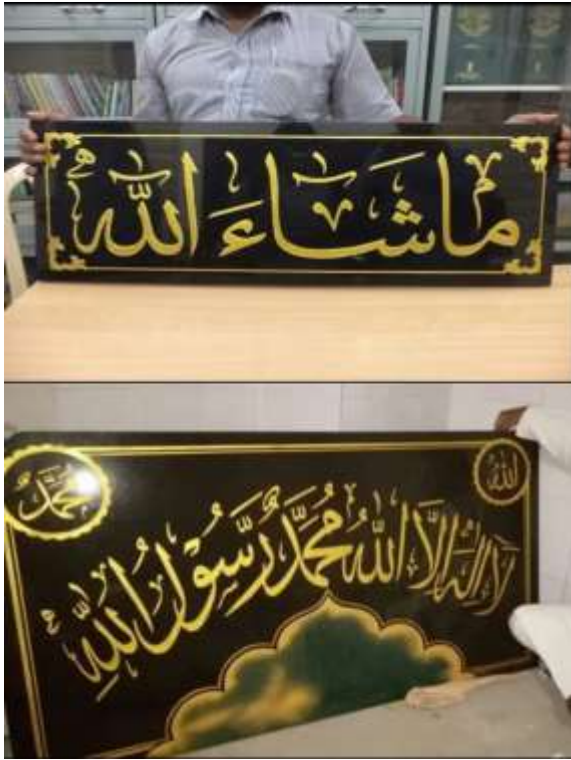 مَا شَاءَ اللّٰهُ
اللّٰه
مُحَمَّدٌ
لَا إِلٰهَ إِلَّا اللّٰهُ مُحَمَّدٌ رَّسُوْلُ اللّٰهِ